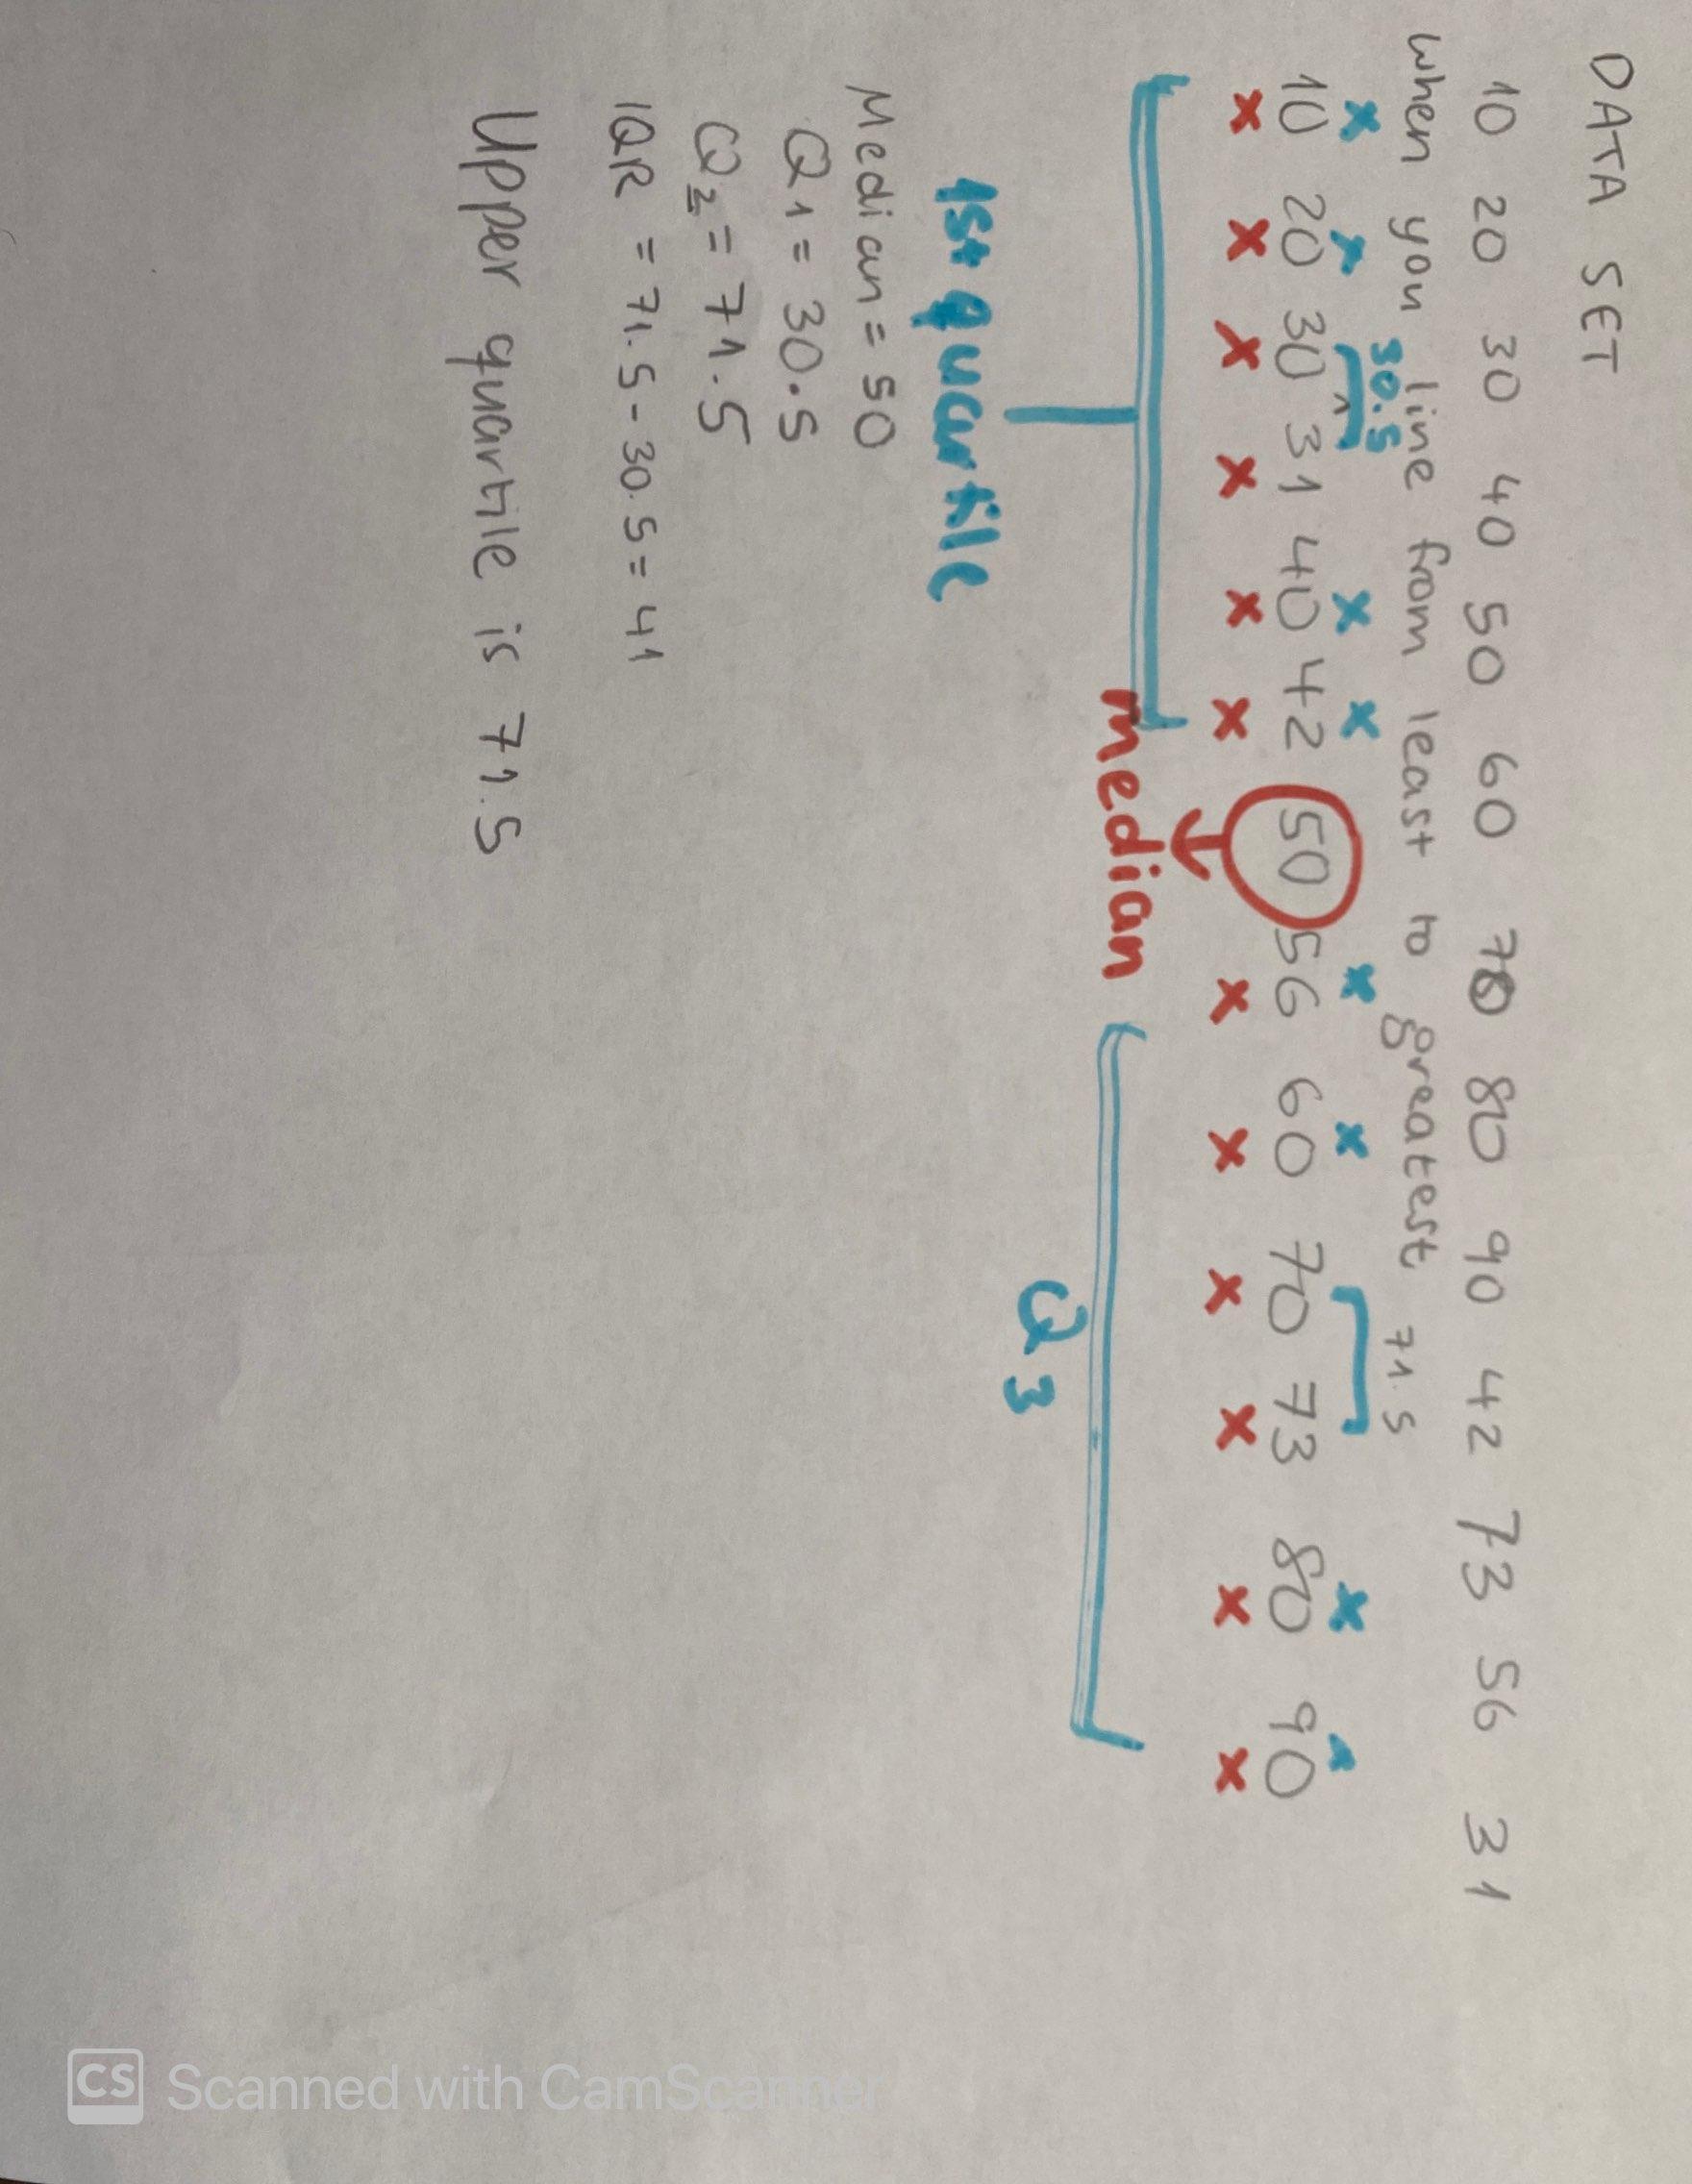 DATA SET
10 20 30 40 50 60 70 80 90 42 73 56 31
when you line from least to greatest
30.5 71.5
10 20 30 31 40 42 50 56 60 70 73 80 90
median
1st quartile
Q3
Median = 50
Q1 = 30.5
Q3 = 71.5
IQR = 71.5 - 30.5 = 41
Upper quartile is 71.5
CS Scanned with CamScanner